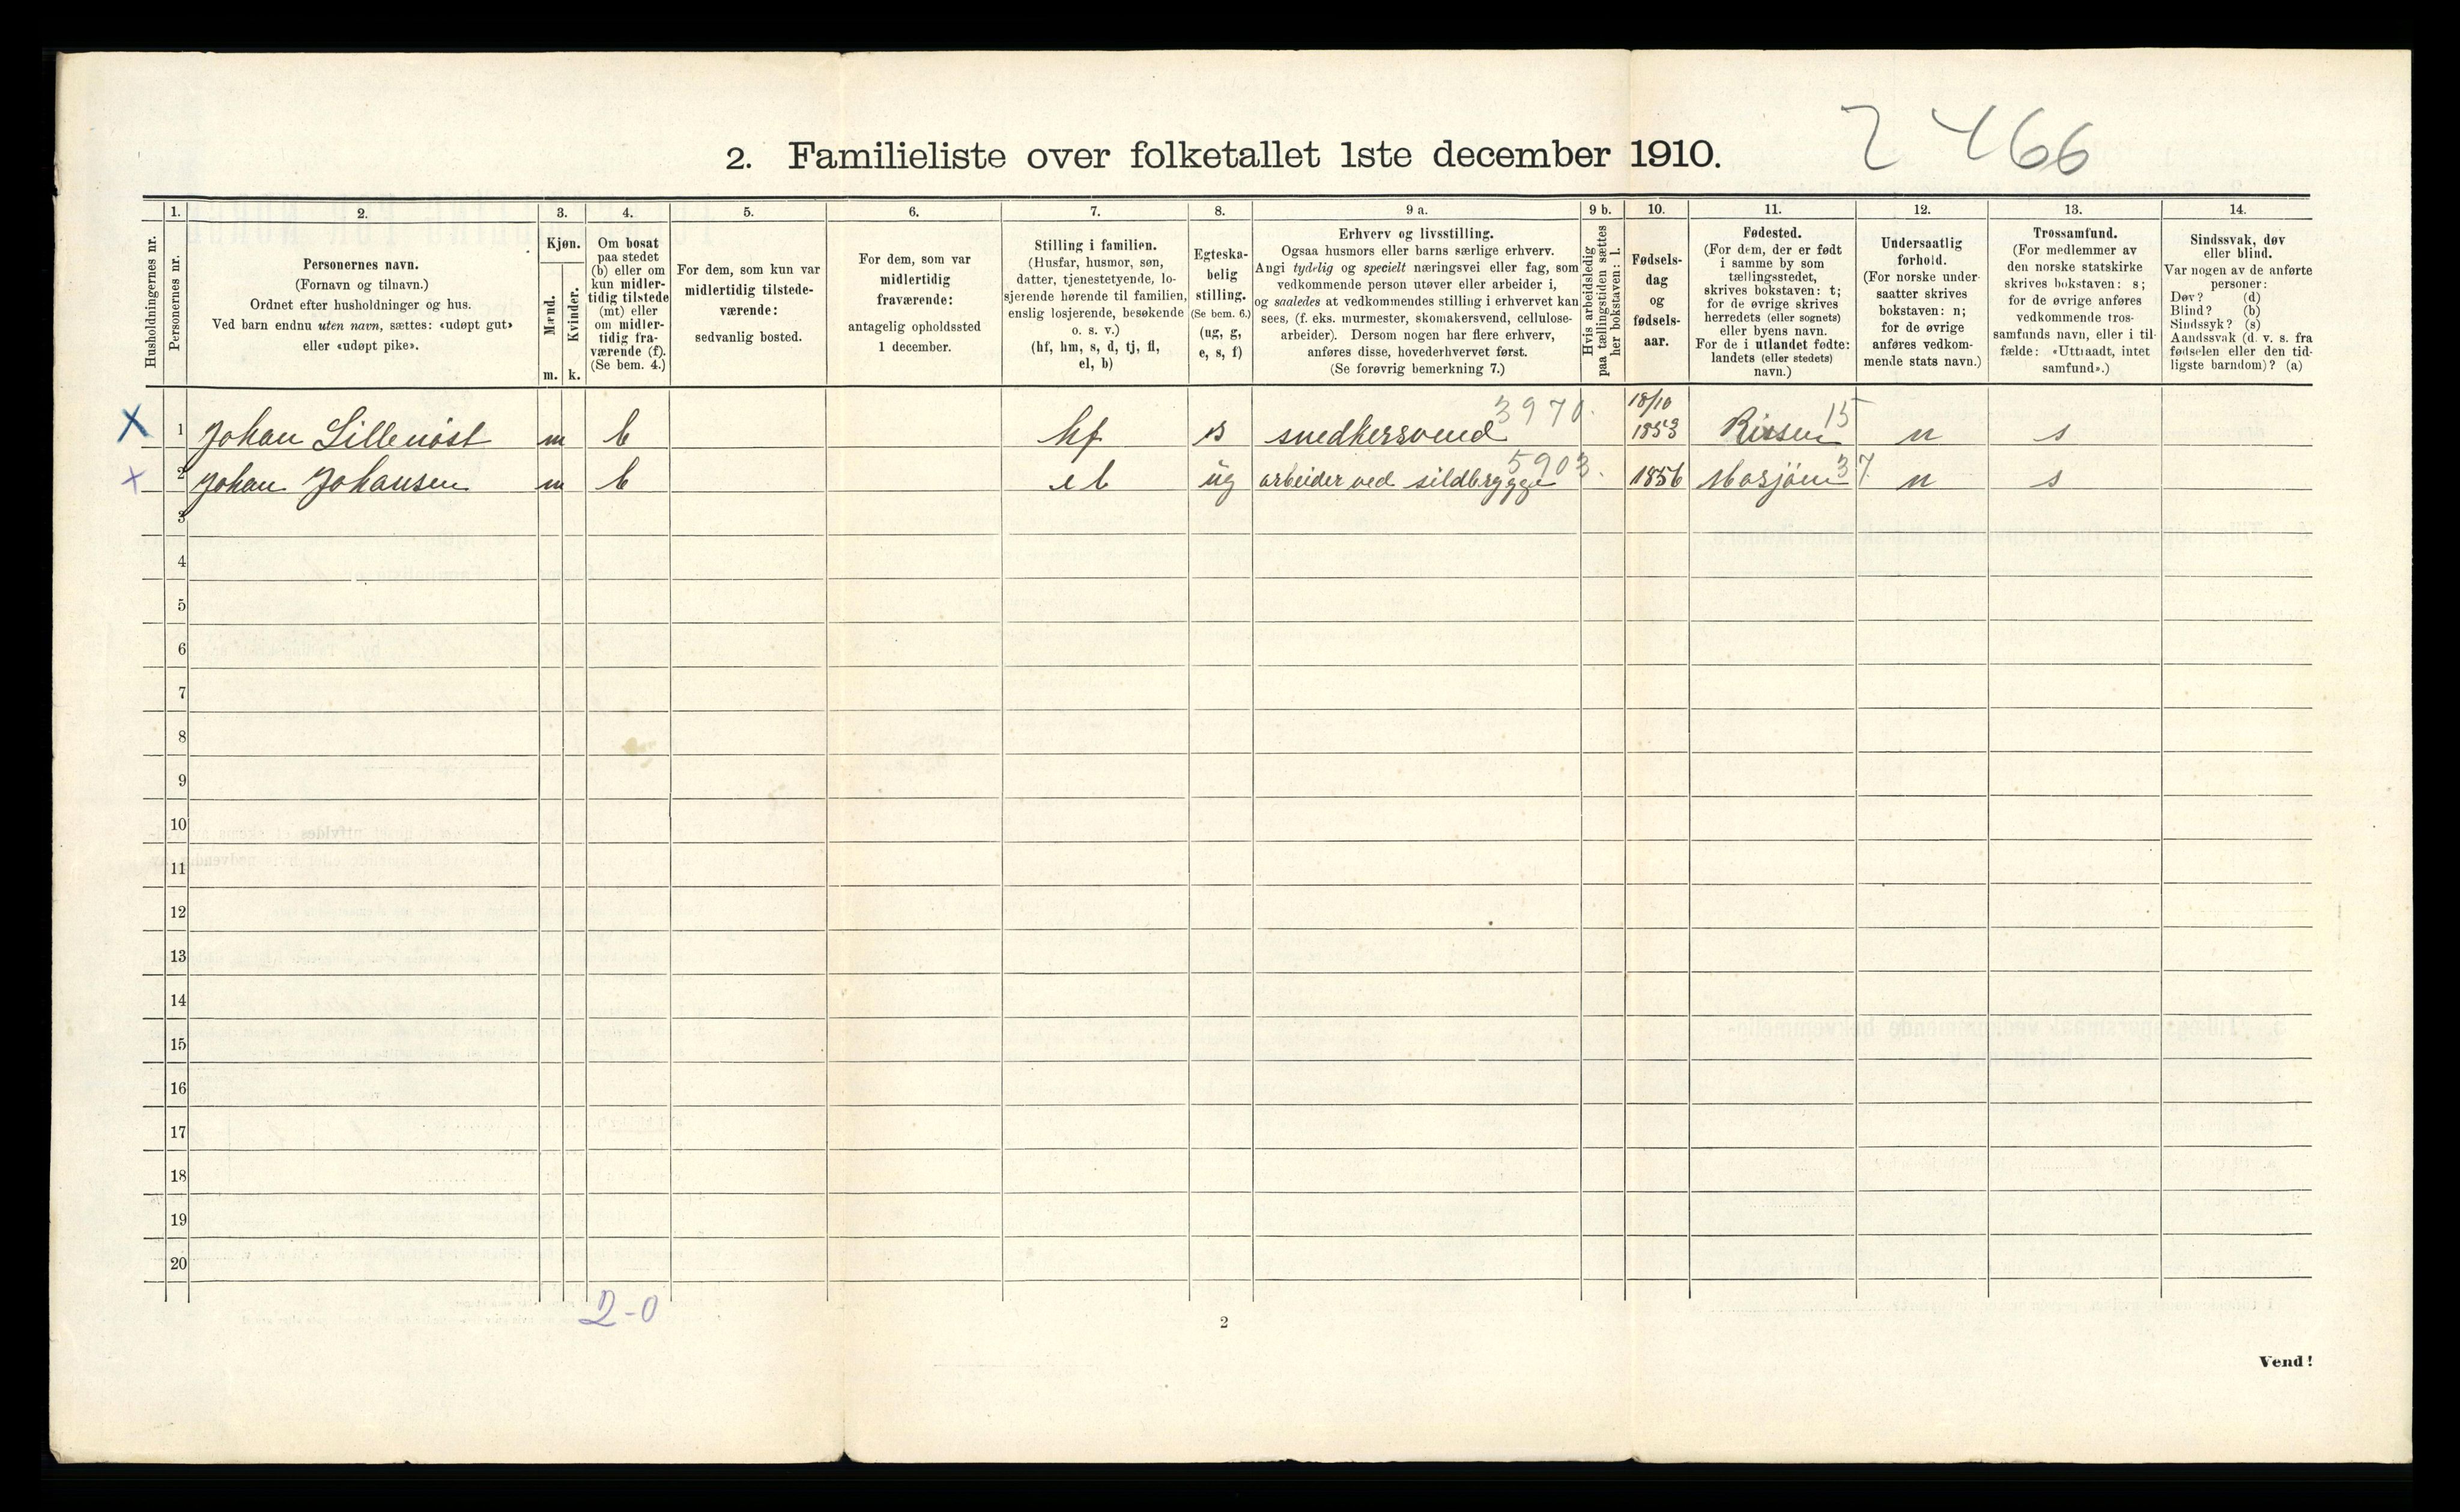 2 466
2. Familieliste over folketallet 1ste december 1910.
Husholdningernes nr.
1.
Personernes nr.
2.
Personernes navn.
(Fornavn og tilnavn.)
Ordnet efter husholdninger og hus.
Ved barn endnu uten navn, sættes: «udøpt gut»
eller «udøpt pike».
3.
Kjøn.
Mænd.
Kvinder.
m. k.
4.
Om bosat
paa stedet
(b) eller om
kun midler-
tidig tilstede
(mt) eller
om midler-
tidig fra-
værende (f).
(Se bem. 4.)
5.
For dem, som kun var
midlertidig tilstede-
værende:
sedvanlig bosted.
6.
For dem, som var
midlertidig
fraværende:
antagelig opholdssted
1 december.
7.
Stilling i familien.
(Husfar, husmor, søn,
datter, tjenestetyende, lo-
sjerende hørende til familien,
enslig losjerende, besøkende
o. s. v.)
(hf, hm, s, d, tj, fl,
el, b)
8.
Egteska-
belig
stilling.
(Se bem. 6.)
(ug, g,
e, s, f)
9 a.
Erhverv og livsstilling.
Ogsaa husmors eller barns særlige erhverv.
Angi tydelig og specielt næringsvei eller fag, som
vedkommende person utøver eller arbeider i,
og saaledes at vedkommendes stilling i erhvervet kan
sees, (f. eks. murmester, skomakersvend, cellulose-
arbeider). Dersom nogen har flere erhverv,
anføres disse, hovederhvervet først.
(Se forøvrig bemerkning 7.)
9 b.
Hvis arbeidsledig
paa tællingstiden sættes
her bokstaven: l.
10.
Fødsels-
dag
og
fødsels-
aar.
11.
Fødested.
(For dem, der er født
i samme by som
tællingsstedet,
skrives bokstaven: t;
for de øvrige skrives
herredets (eller sognets)
eller byens navn.
For de i utlandet fødte:
landets (eller stedets)
navn.)
12.
Undersaatlig
forhold.
(For norske under-
saatter skrives
bokstaven: n;
for de øvrige
anføres vedkom-
mende stats navn.)
13.
Trossamfund.
(For medlemmer av
den norske statskirke
skrives bokstaven: s;
for de øvrige anføres
vedkommende tros-
samfunds navn, eller i til-
fælde: «Uttraadt, intet
samfund».)
14.
Sindssvak, døv
eller blind.
Var nogen av de anførte
personer:
Døv? (d)
Blind? (b)
Sindssyk? (s)
Aandssvak (d. v. s. fra
fødselen eller den tid-
ligste barndom)? (a)
X 1 Johan Lillenöst m b hf s snedkersvend 3970. 18/10 1853 Rissen 15 n s
X 2 Johan Johansen m b el ug arbeider ved sildbrygge 5903. 1856 Mosjöen 37. n s
3
4
5
6
7
8
9
10
11
12
13
14
15
16
17
18
19
20
2-0
2
Vend!